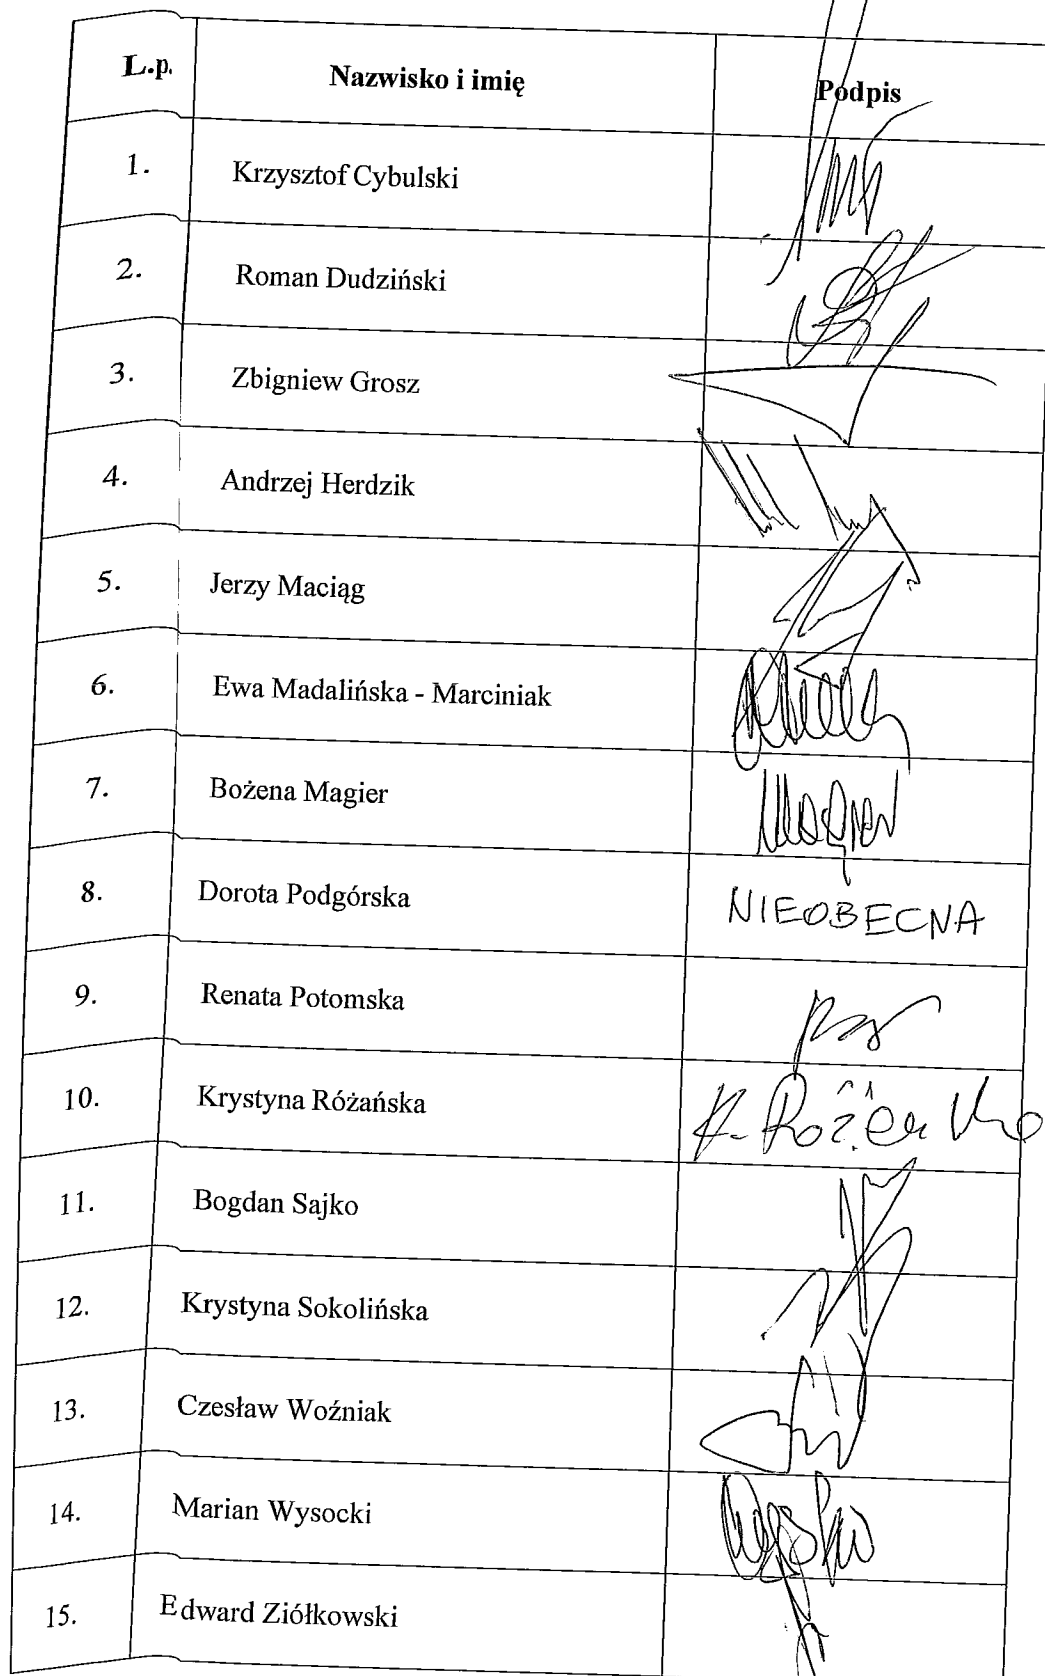 L.p. Nazwisko i imię Podpis
1. Krzysztof Cybulski
2. Roman Dudziński
3. Zbigniew Grosz
4. Andrzej Herdzik
5. Jerzy Maciąg
6. Ewa Madalińska - Marciniak
7. Bożena Magier
8. Dorota Podgórska NIEOBECNA
9. Renata Potomska
10. Krystyna Różańska
11. Bogdan Sajko
12. Krystyna Sokolińska
13. Czesław Woźniak
14. Marian Wysocki
15. Edward Ziółkowski